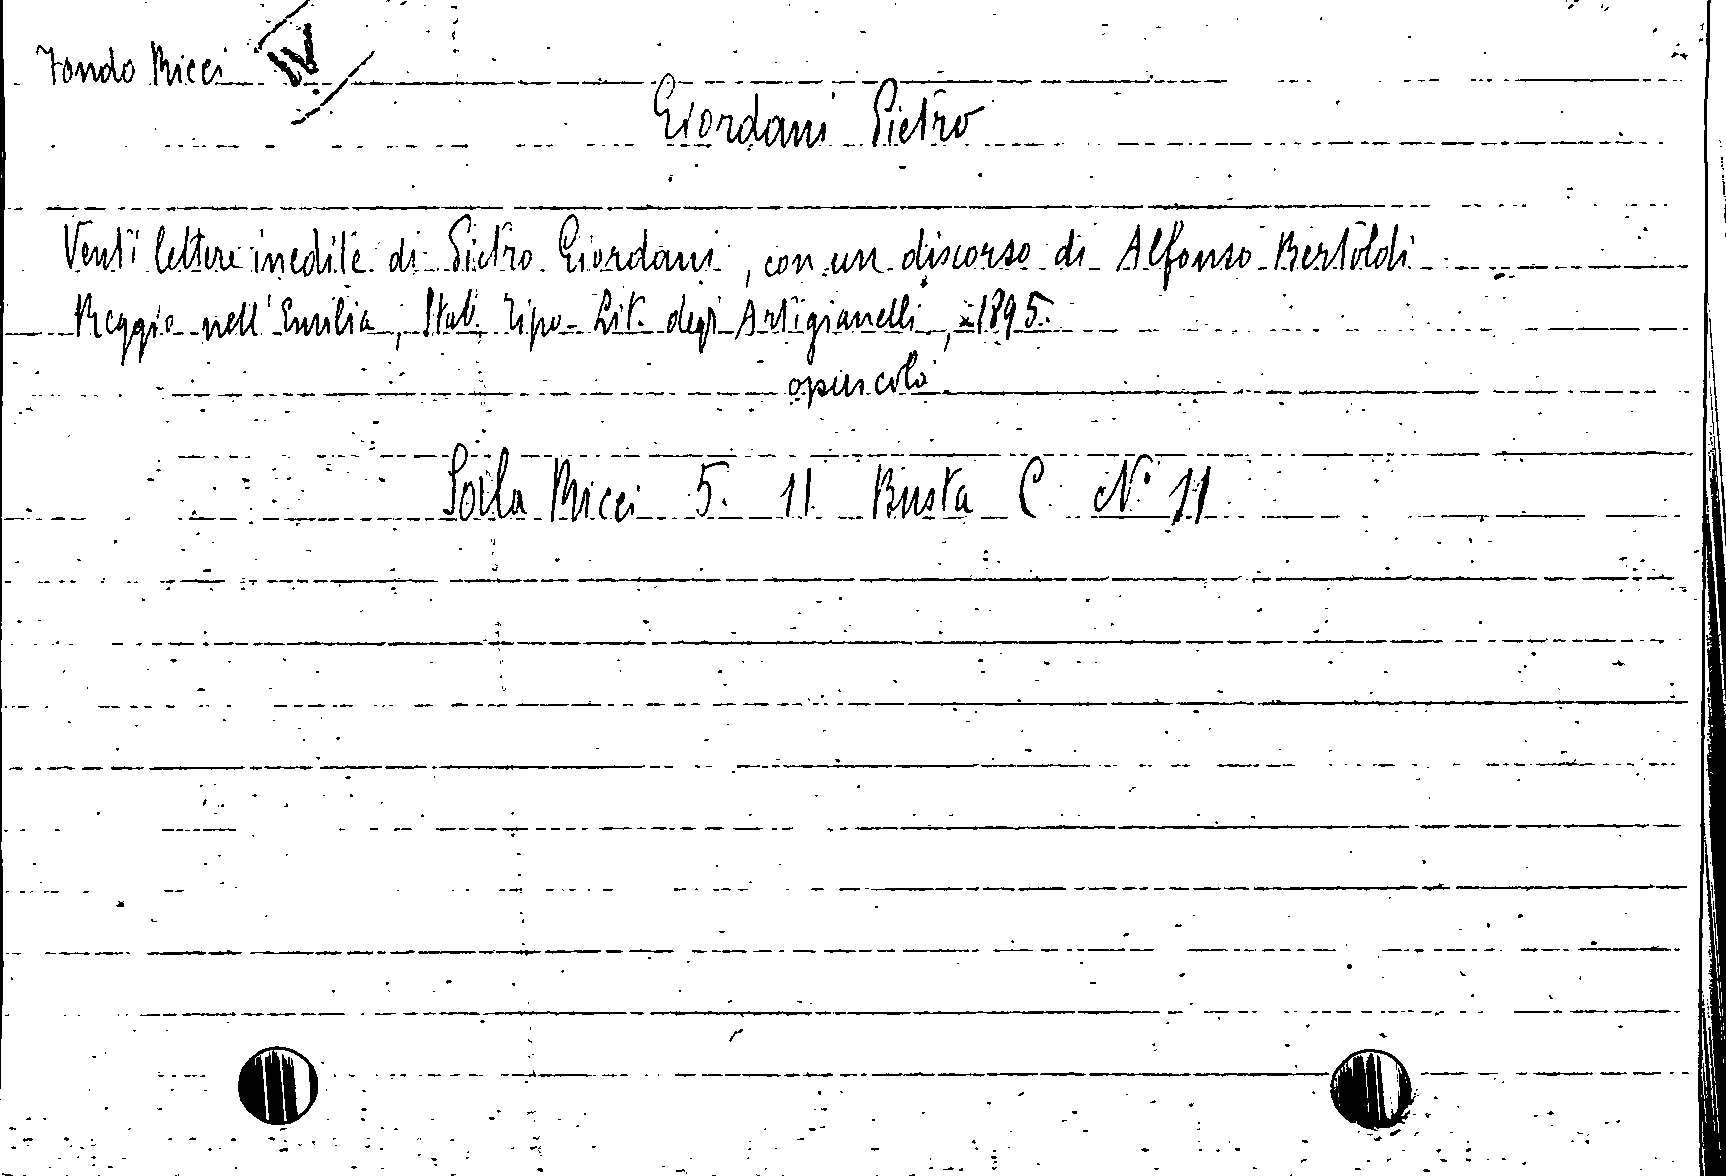 Fondo Ricci IV
Giordani Pietro
Venti lettere inedite di Pietro Giordani, con un discorso di Alfonso Bertoldi
Reggio nell'Emilia, Stab. Tipo-Lit. degi Artigianelli, 1895.
opuscolo
Ricci 5. 11 Busta C N° 11